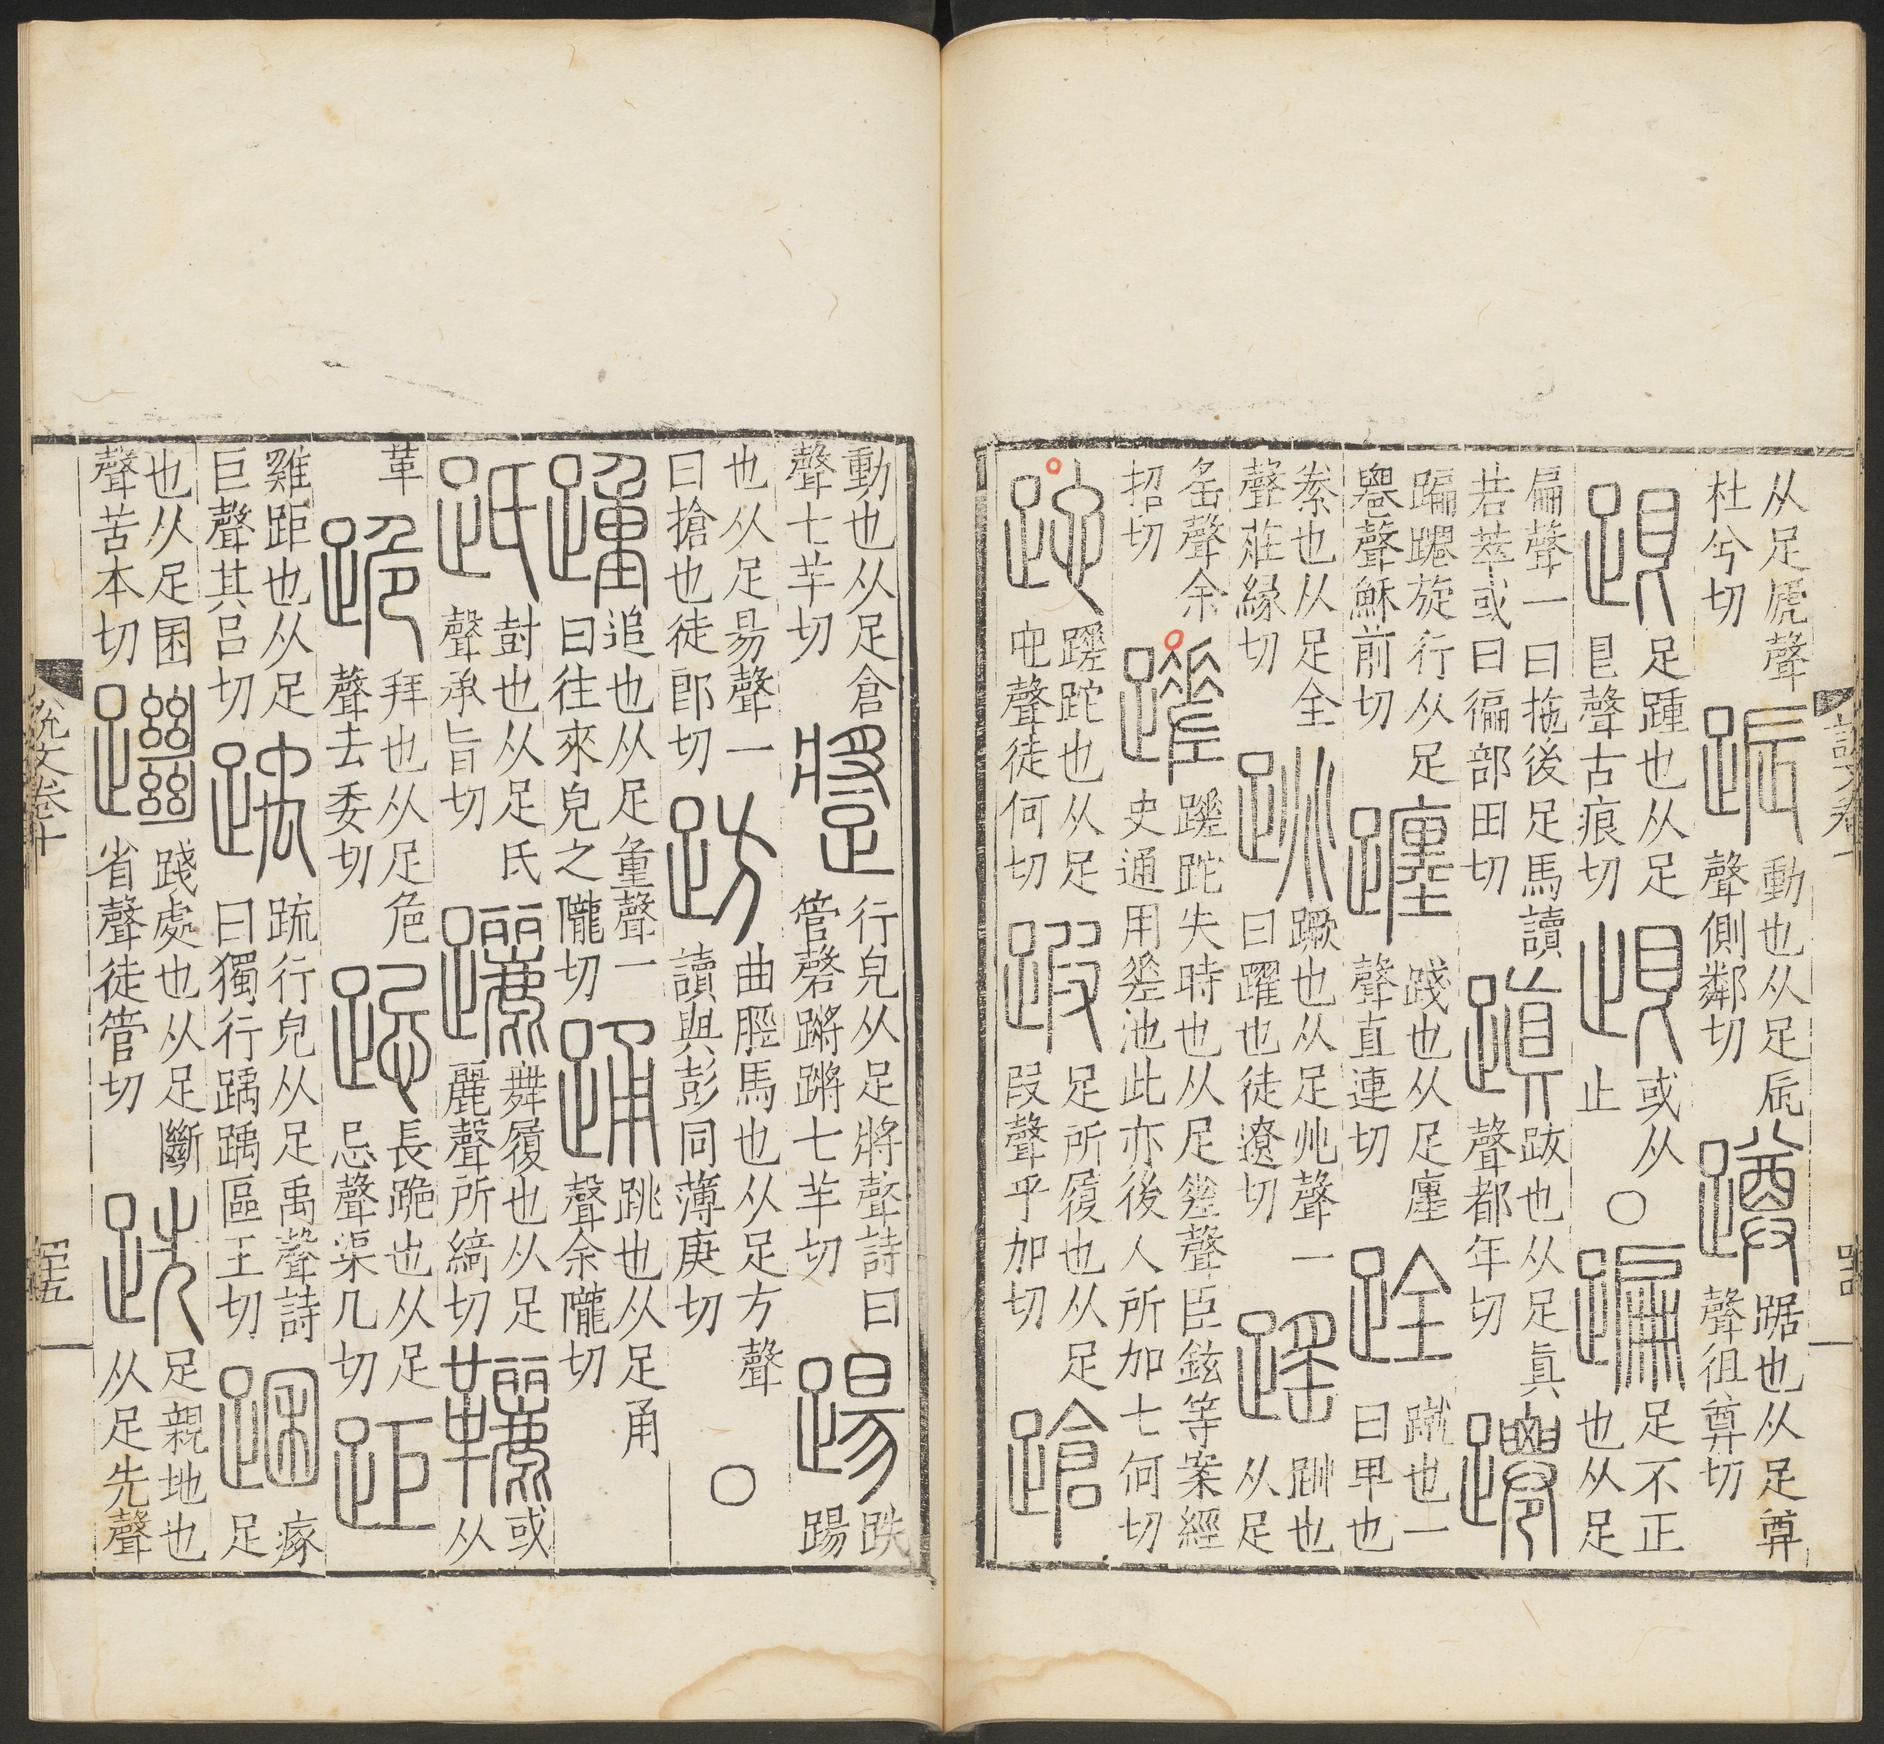 从足虒聲
杜兮切
䟴
動也从足辰
聲側鄰切
蹲
踞也从足尊
聲徂尊切
跟
足踵也从足
艮聲古痕切
或从
止
○
蹁
足不正
也从足
扁聲一曰拖後足馬讀
若苹或曰徧部田切
蹎
跋也从足眞
聲都年切
躚
蹁躚旋行从足
䙴聲穌前切
躔
踐也从足廛
聲直連切
跧
蹴也一
曰卑也
絭也从足全
聲莊緣切
跳
蹶也从足兆聲一
曰躍也徒遼切
䠛
跳也
从足
䍃聲余
招切
蹉
蹉跎失時也从足差聲臣鉉等案經
史通用差池此亦後人所加七何切
跎
蹉跎也从足
它聲徒何切
足所履也从足
叚聲乎加切
蹌
動也从足倉
聲七羊切
蹡
行皃从足將聲詩曰
管磬蹡蹡七羊切
踼
跌
踼
也从足昜聲一
曰搶也徒郎切
趽
曲脛馬也从足方聲
讀與彭同薄庚切
○
踵
追也从足重聲一
曰往來皃之隴切
踊
跳也从足甬
聲余隴切
尌也从足氏
聲承旨切
躧
舞履也从足
麗聲所綺切
或
从
革
跪
拜也从足危
聲去委切
跽
長跪也从足
忌聲渠几切
距
雞距也从足
巨聲其呂切
踽
疏行皃从足禹聲詩
曰獨行踽踽區主切
瘃
足
也从足困
聲苦本切
躖
踐處也从足斷
省聲徒管切
跣
足親地也
从足先聲
説文卷十